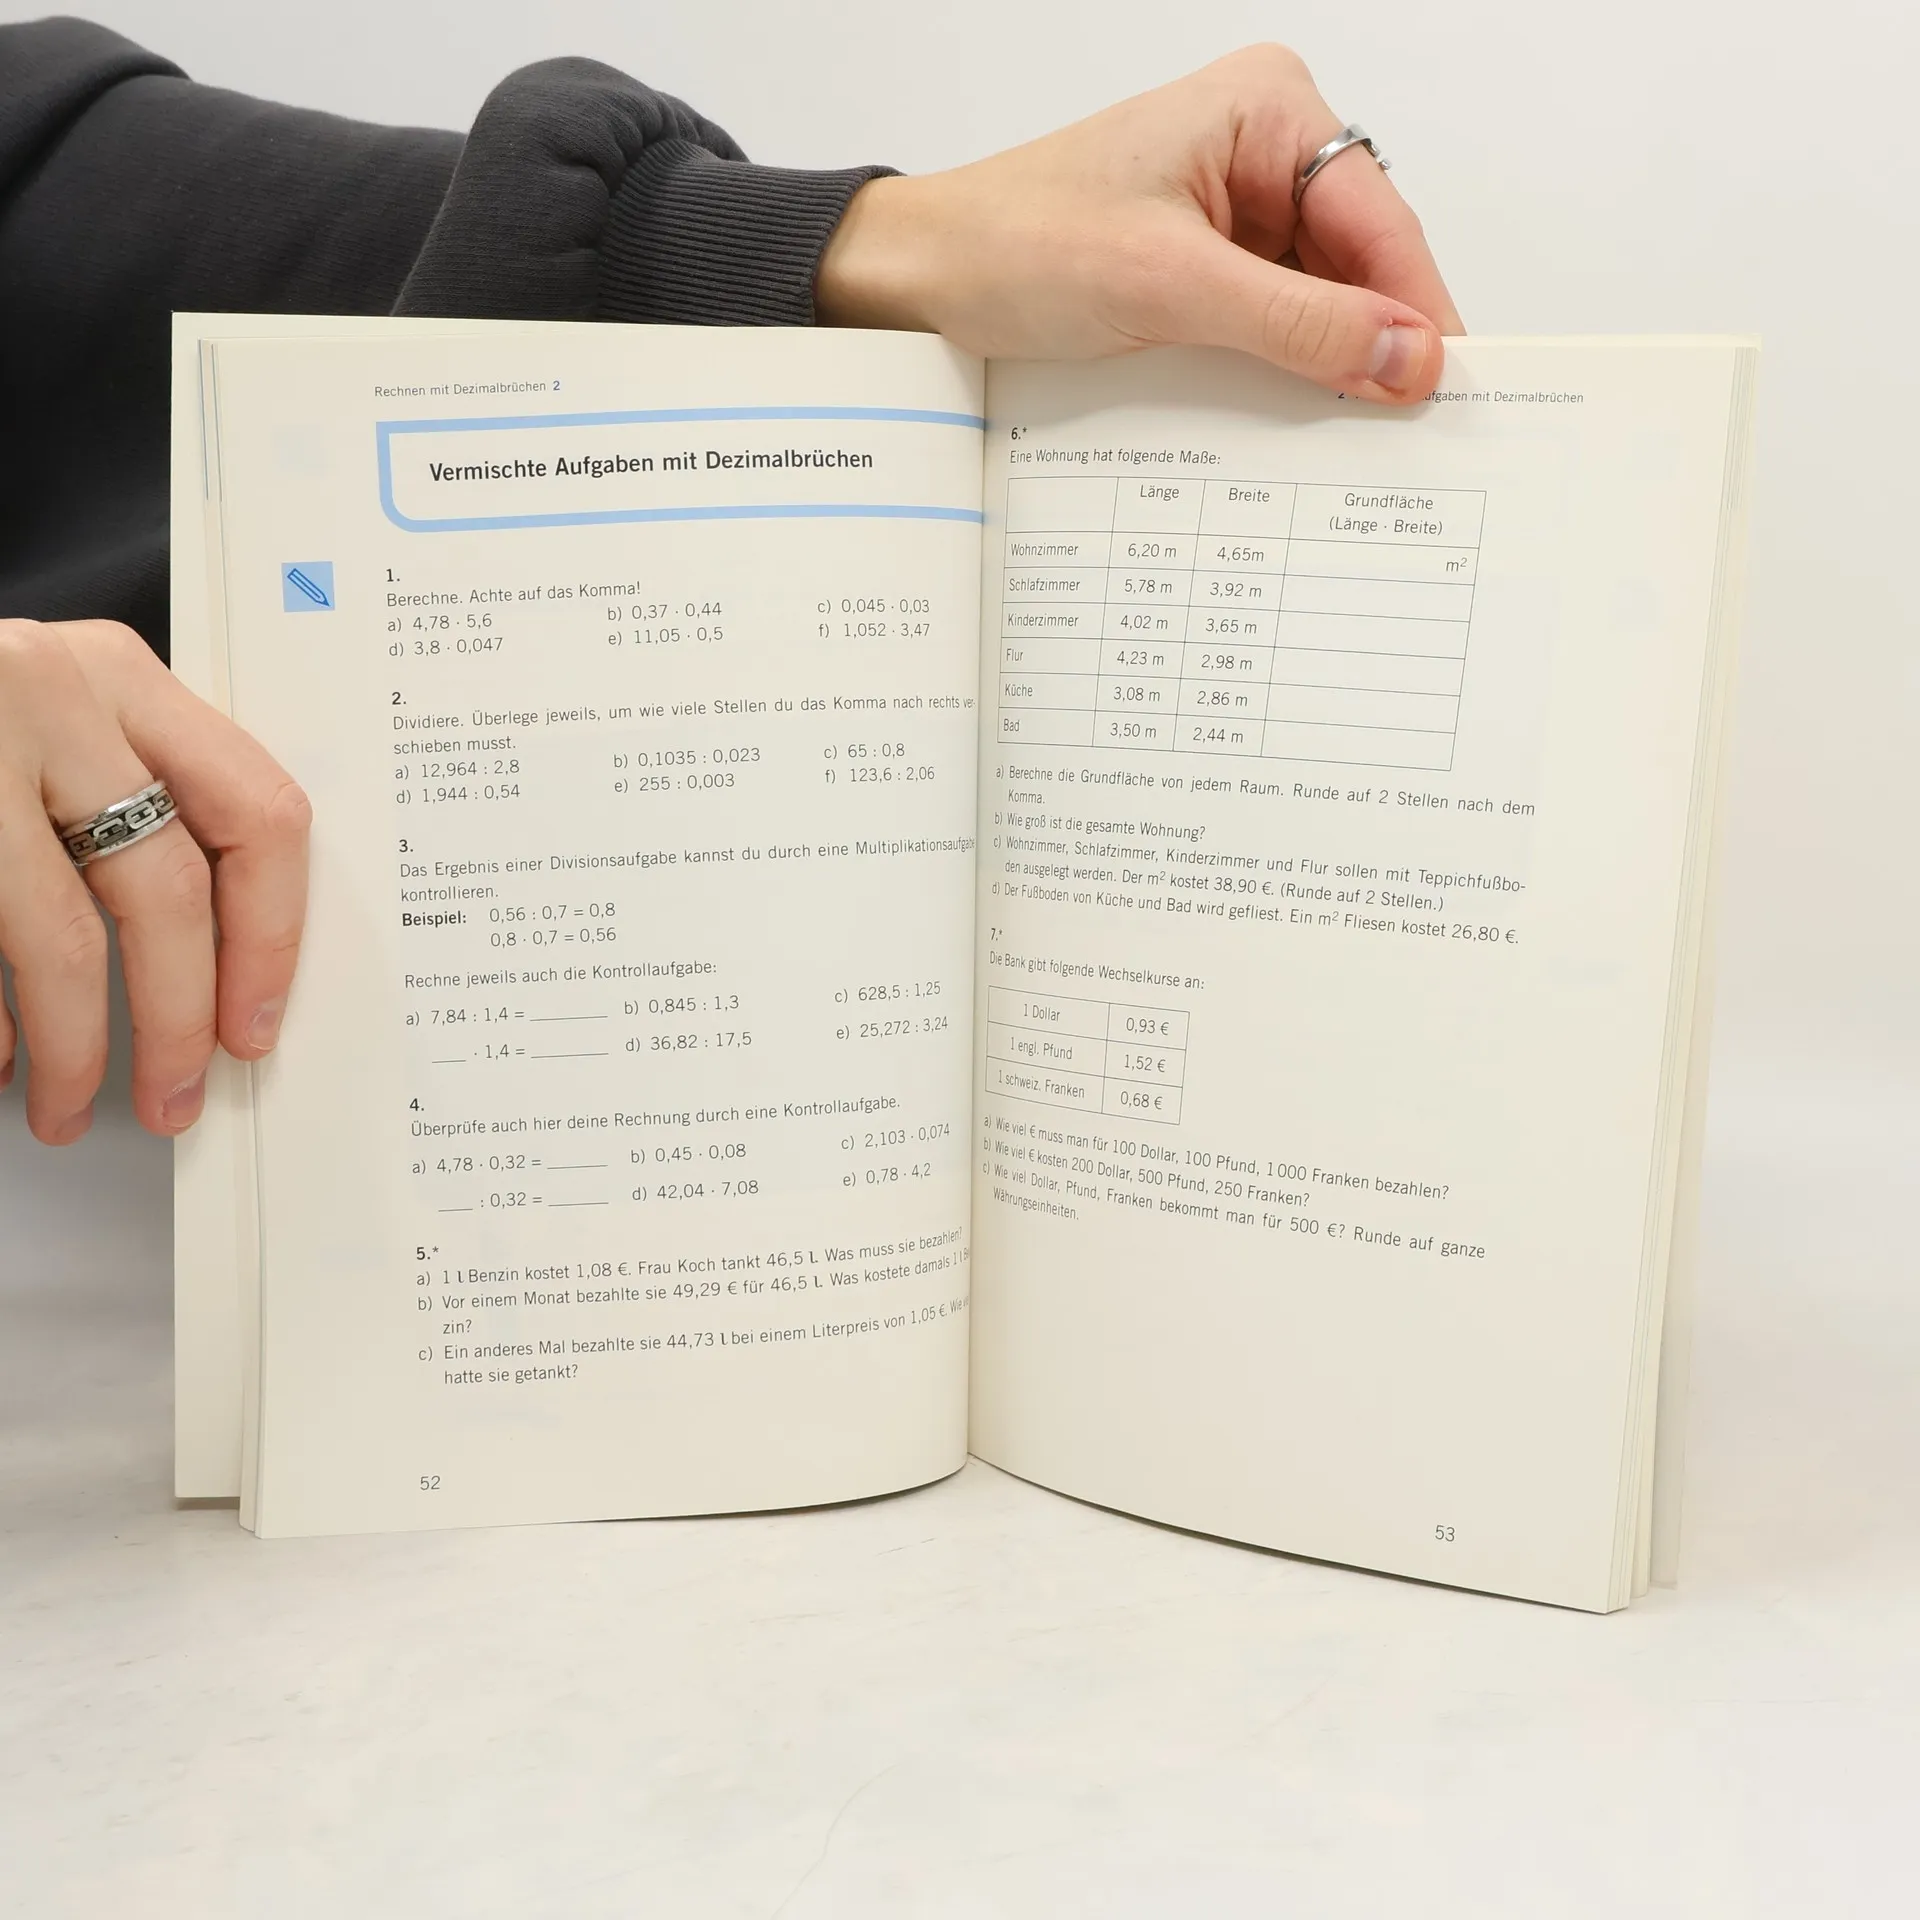 Rechnen mit Dezimalbrüchen 2
Vermischte Aufgaben mit Dezimalbrüchen
1.
Berechne. Achte auf das Komma!
a) 4,78 · 5,6 b) 0,37 · 0,44 c) 0,045 · 0,03
d) 3,8 · 0,047 e) 11,05 · 0,5 f) 1,052 · 3,47
2.
Dividiere. Überlege jeweils, um wie viele Stellen du das Komma nach rechts ver-
schieben musst.
a) 12,964 : 2,8 b) 0,1035 : 0,023 c) 65 : 0,8
d) 1,944 : 0,54 e) 255 : 0,003 f) 123,6 : 2,06
3.
Das Ergebnis einer Divisionsaufgabe kannst du durch eine Multiplikationsaufgabe
kontrollieren.
Beispiel: 0,56 : 0,7 = 0,8
0,8 · 0,7 = 0,56
Rechne jeweils auch die Kontrollaufgabe:
a) 7,84 : 1,4 = ________ b) 0,845 : 1,3 c) 628,5 : 1,25
____ · 1,4 = ________ d) 36,82 : 17,5 e) 25,272 : 3,24
4.
Überprüfe auch hier deine Rechnung durch eine Kontrollaufgabe.
a) 4,78 · 0,32 = ______ b) 0,45 · 0,08 c) 2,103 · 0,074
____ : 0,32 = ______ d) 42,04 · 7,08 e) 0,78 · 4,2
5.*
a) 1 l Benzin kostet 1,08 €. Frau Koch tankt 46,5 l. Was muss sie bezahlen?
b) Vor einem Monat bezahlte sie 49,29 € für 46,5 l. Was kostete damals 1 l
zin?
c) Ein anderes Mal bezahlte sie 44,73 l bei einem Literpreis von 1,05 €. Wie
hatte sie getankt?
52
2 ufgaben mit Dezimalbrüchen
6.*
Eine Wohnung hat folgende Maße:
Länge Breite Grundfläche
(Länge · Breite)
Wohnzimmer 6,20 m 4,65m m²
Schlafzimmer 5,78 m 3,92 m
Kinderzimmer 4,02 m 3,65 m
Flur 4,23 m 2,98 m
Küche 3,08 m 2,86 m
Bad 3,50 m 2,44 m
a) Berechne die Grundfläche von jedem Raum. Runde auf 2 Stellen nach dem
Komma.
b) Wie groß ist die gesamte Wohnung?
c) Wohnzimmer, Schlafzimmer, Kinderzimmer und Flur sollen mit Teppichfußbo-
den ausgelegt werden. Der m² kostet 38,90 €. (Runde auf 2 Stellen.)
d) Der Fußboden von Küche und Bad wird gefliest. Ein m² Fliesen kostet 26,80 €.
7.*
Die Bank gibt folgende Wechselkurse an:
1 Dollar 0,93 €
1 engl. Pfund 1,52 €
1 schweiz. Franken 0,68 €
a) Wie viel € muss man für 100 Dollar, 100 Pfund, 1 000 Franken bezahlen?
b) Wie viel € kosten 200 Dollar, 500 Pfund, 250 Franken?
c) Wie viel Dollar, Pfund, Franken bekommt man für 500 €? Runde auf ganze
Währungseinheiten.
53